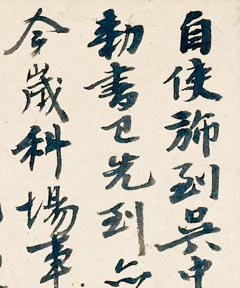 自使旆到吳中
勑書已先到
今歲科場事